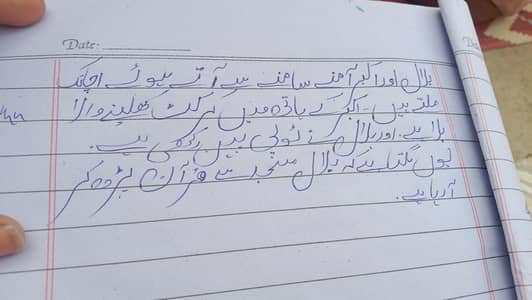 Date:
بلال اور اکبر آمنے سامنے سے آتے ہوئے اچانک
ملتے ہیں۔ اکبر کے ہاتھ میں کرکٹ کھیلنے والا
بلا ہے۔ اور بلال نے ٹوپی پہن رکھی ہے۔
یوں لگتا ہے کہ بلال مسجد سے قرآن پڑھ کر
آ رہا ہے۔
Da